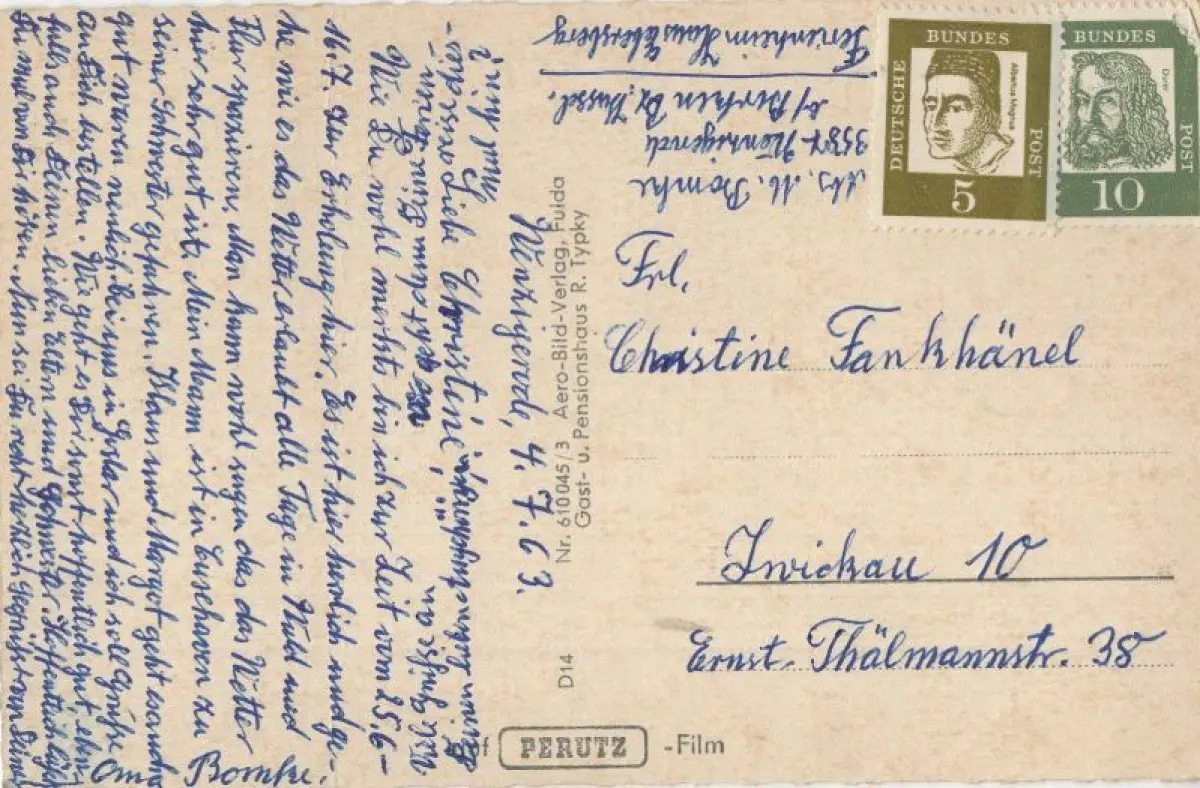 Wenzigerode, 4.7.63.
Liebe Christine!
Wie Du wohl merkst bin ich zur Zeit vom 25.6–
16.7. zur Erholung hier. Es ist hier herrlich und ge-
he wie es das Wetter erlaubt alle Tage in Wald und
Flur spazieren. Man kann wohl sagen das das Wetter
hier sehr gut ist. Mein Mann ist in Cuxhaven zu
seiner Schwester gefahren. Klaus und Margot geht es auch
gut waren neulich bei uns in Goslar und ich soll Grüße
an Dich bestellen. Wie geht es Dir sonst hoffentlich gut eben-
falls auch Deinen lieben Eltern und Schwester. Hoffentlich läßt
Du mal von Dir hören. Nun sei Du recht herzlich gegrüßt von Deiner
Oma Bomke.
Abs. M. Bomke
3587 Wenzigerode
b/ Borken Bz. Kassel.
Ferienheim Haus Ebersberg
BUNDES
DEUTSCHE
POST
Albertus Magnus
5
BUNDES
POST
Dürer
10
Frl.
Christine Fankhänel
Zwickau 10
Ernst-Thälmannstr. 38
D14 Nr. 610045/3 Aero-Bild-Verlag, Fulda
Gast- u. Pensionshaus R. Typky
auf PERUTZ -Film